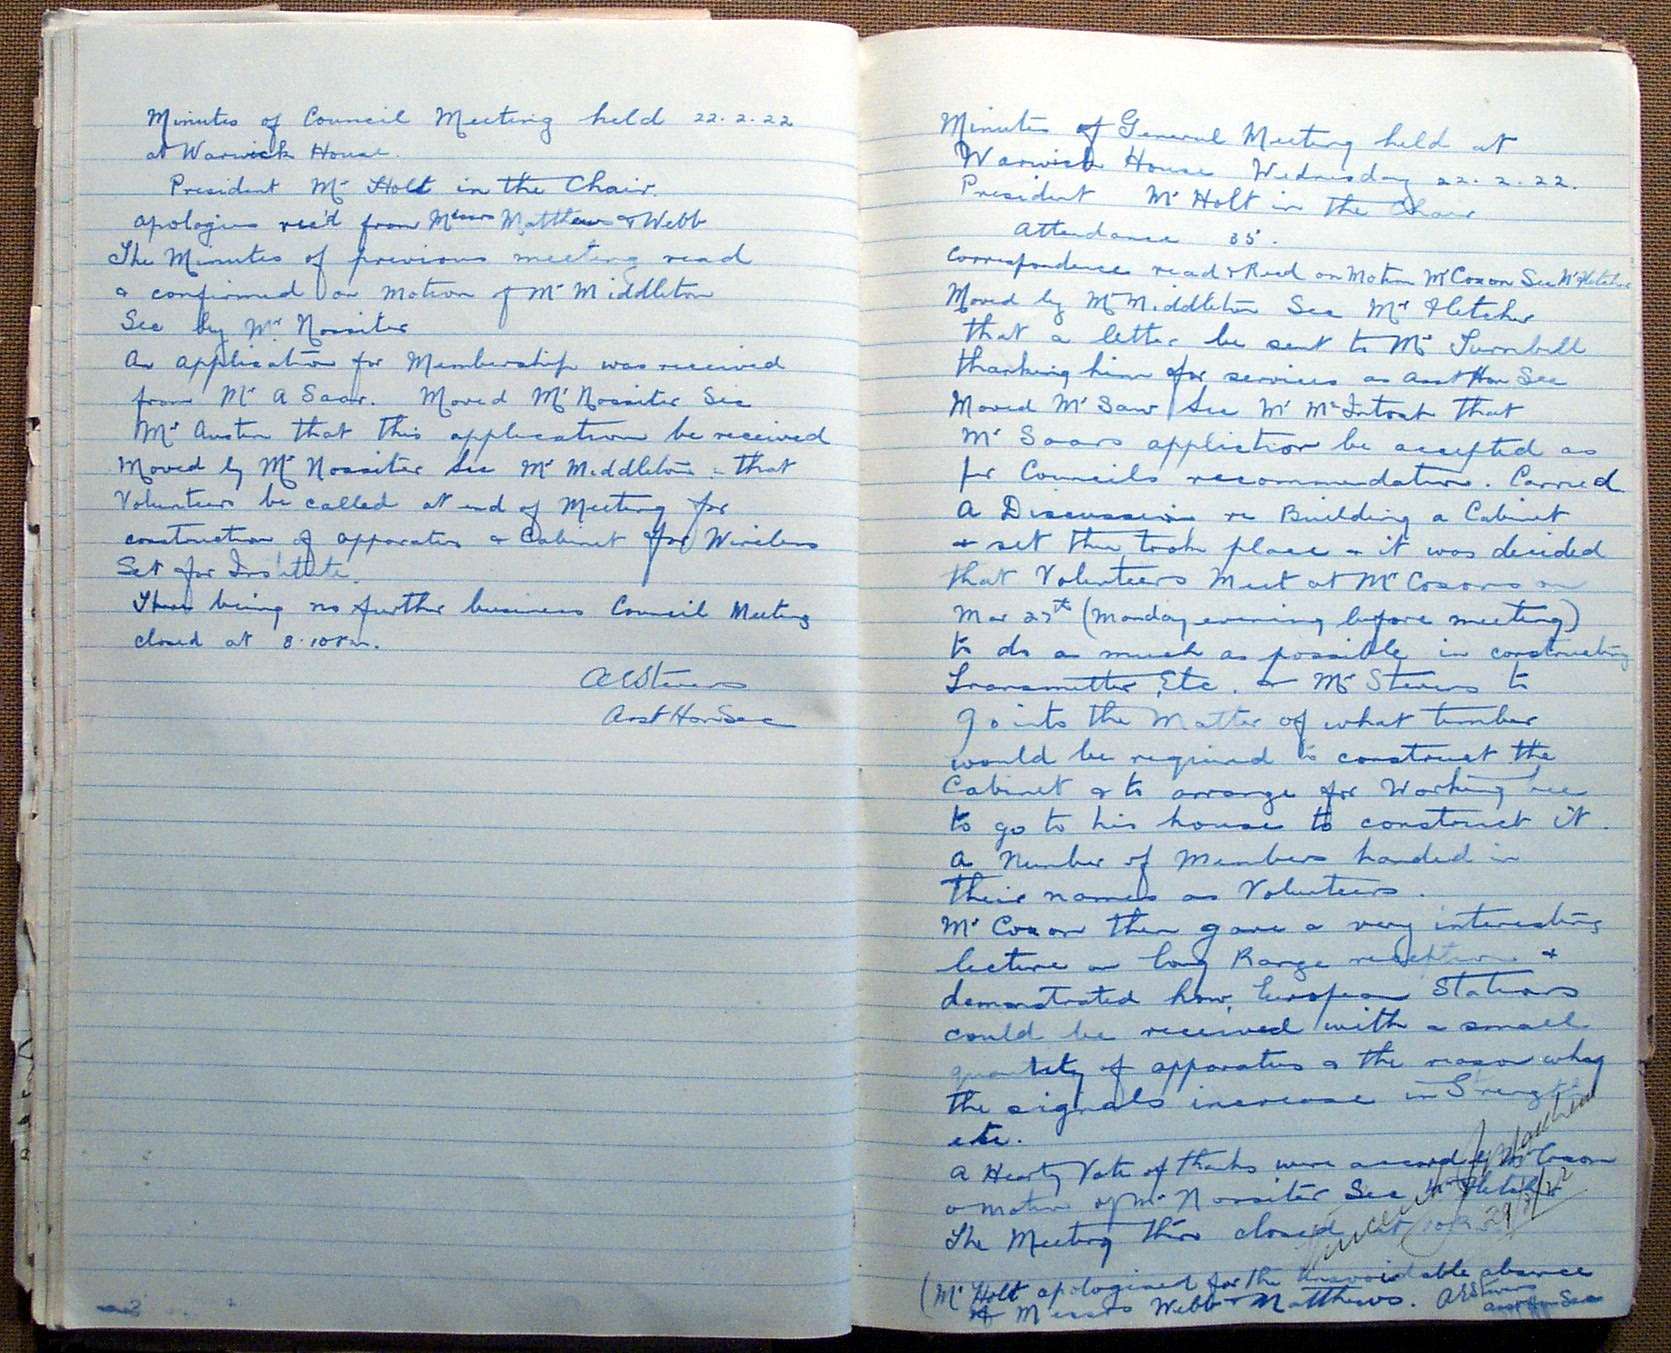 Minutes of Council Meeting held 22.2.22
at Warwick House.
President Mr Holt in the Chair.
apologies rec'd from Messrs Matthews & Webb
The Minutes of previous meeting read
& confirmed on motion of Mr Middleton
Sec by Mr Rossiter
An application for Membership was received
from Mr A Saar. Moved Mr Rossiter Sec
Mr Austin that this application be received
Moved by Mr Rossiter Sec Mr Middleton - that
Volunteers be called at end of Meeting for
construction of apparatus & Cabinet for Wireless
Set for Institute.
There being no further business Council Meeting
closed at 8.10 P.m.
AEStevens
Asst Hon Sec
Minutes of General Meeting held at
Warwick House Wednesday 22.2.22.
President Mr Holt in the Chair
Attendance 35.
Correspondence read & Recd on Motion Mr Coxon Sec Mr Fletcher
Moved by Mr Middleton Sec Mr Fletcher
that a letter be sent to Mr Turnbull
thanking him for services as Asst Hon Sec
Moved Mr Saw Sec Mr McIntosh that
Mr Saars appliction be accepted as
per Councils recommendation. Carried
A Discussion re Building a Cabinet
& set then took place & it was decided
that Volunteers Meet at Mr Coxons on
Mar 27th (Monday evening before meeting)
to do as much as possible in constructing
Transmitter Etc. & Mr Stevens to
go into the Matter of what timber
would be required to construct the
Cabinet & to arrange for Working bee
to go to his house to construct it.
A Number of Members handed in
their names as Volunteers.
Mr Coxon then gave a very interesting
lecture on long Range reception &
demonstrated how European Stations
could be received with a small
quantity of apparatus & the reason why
the signals increase in Strength
etc.
A Hearty Vote of thanks were accorded Mr Coxon
o motion of Mr Rossiter Sec Mr Fletcher
The Meeting then closed at 10 P.
29/3/22
(Mr Holt apologised for the unavoidable absence
of Messrs Webb & Matthews. AEStevens
Asst Hon Sec